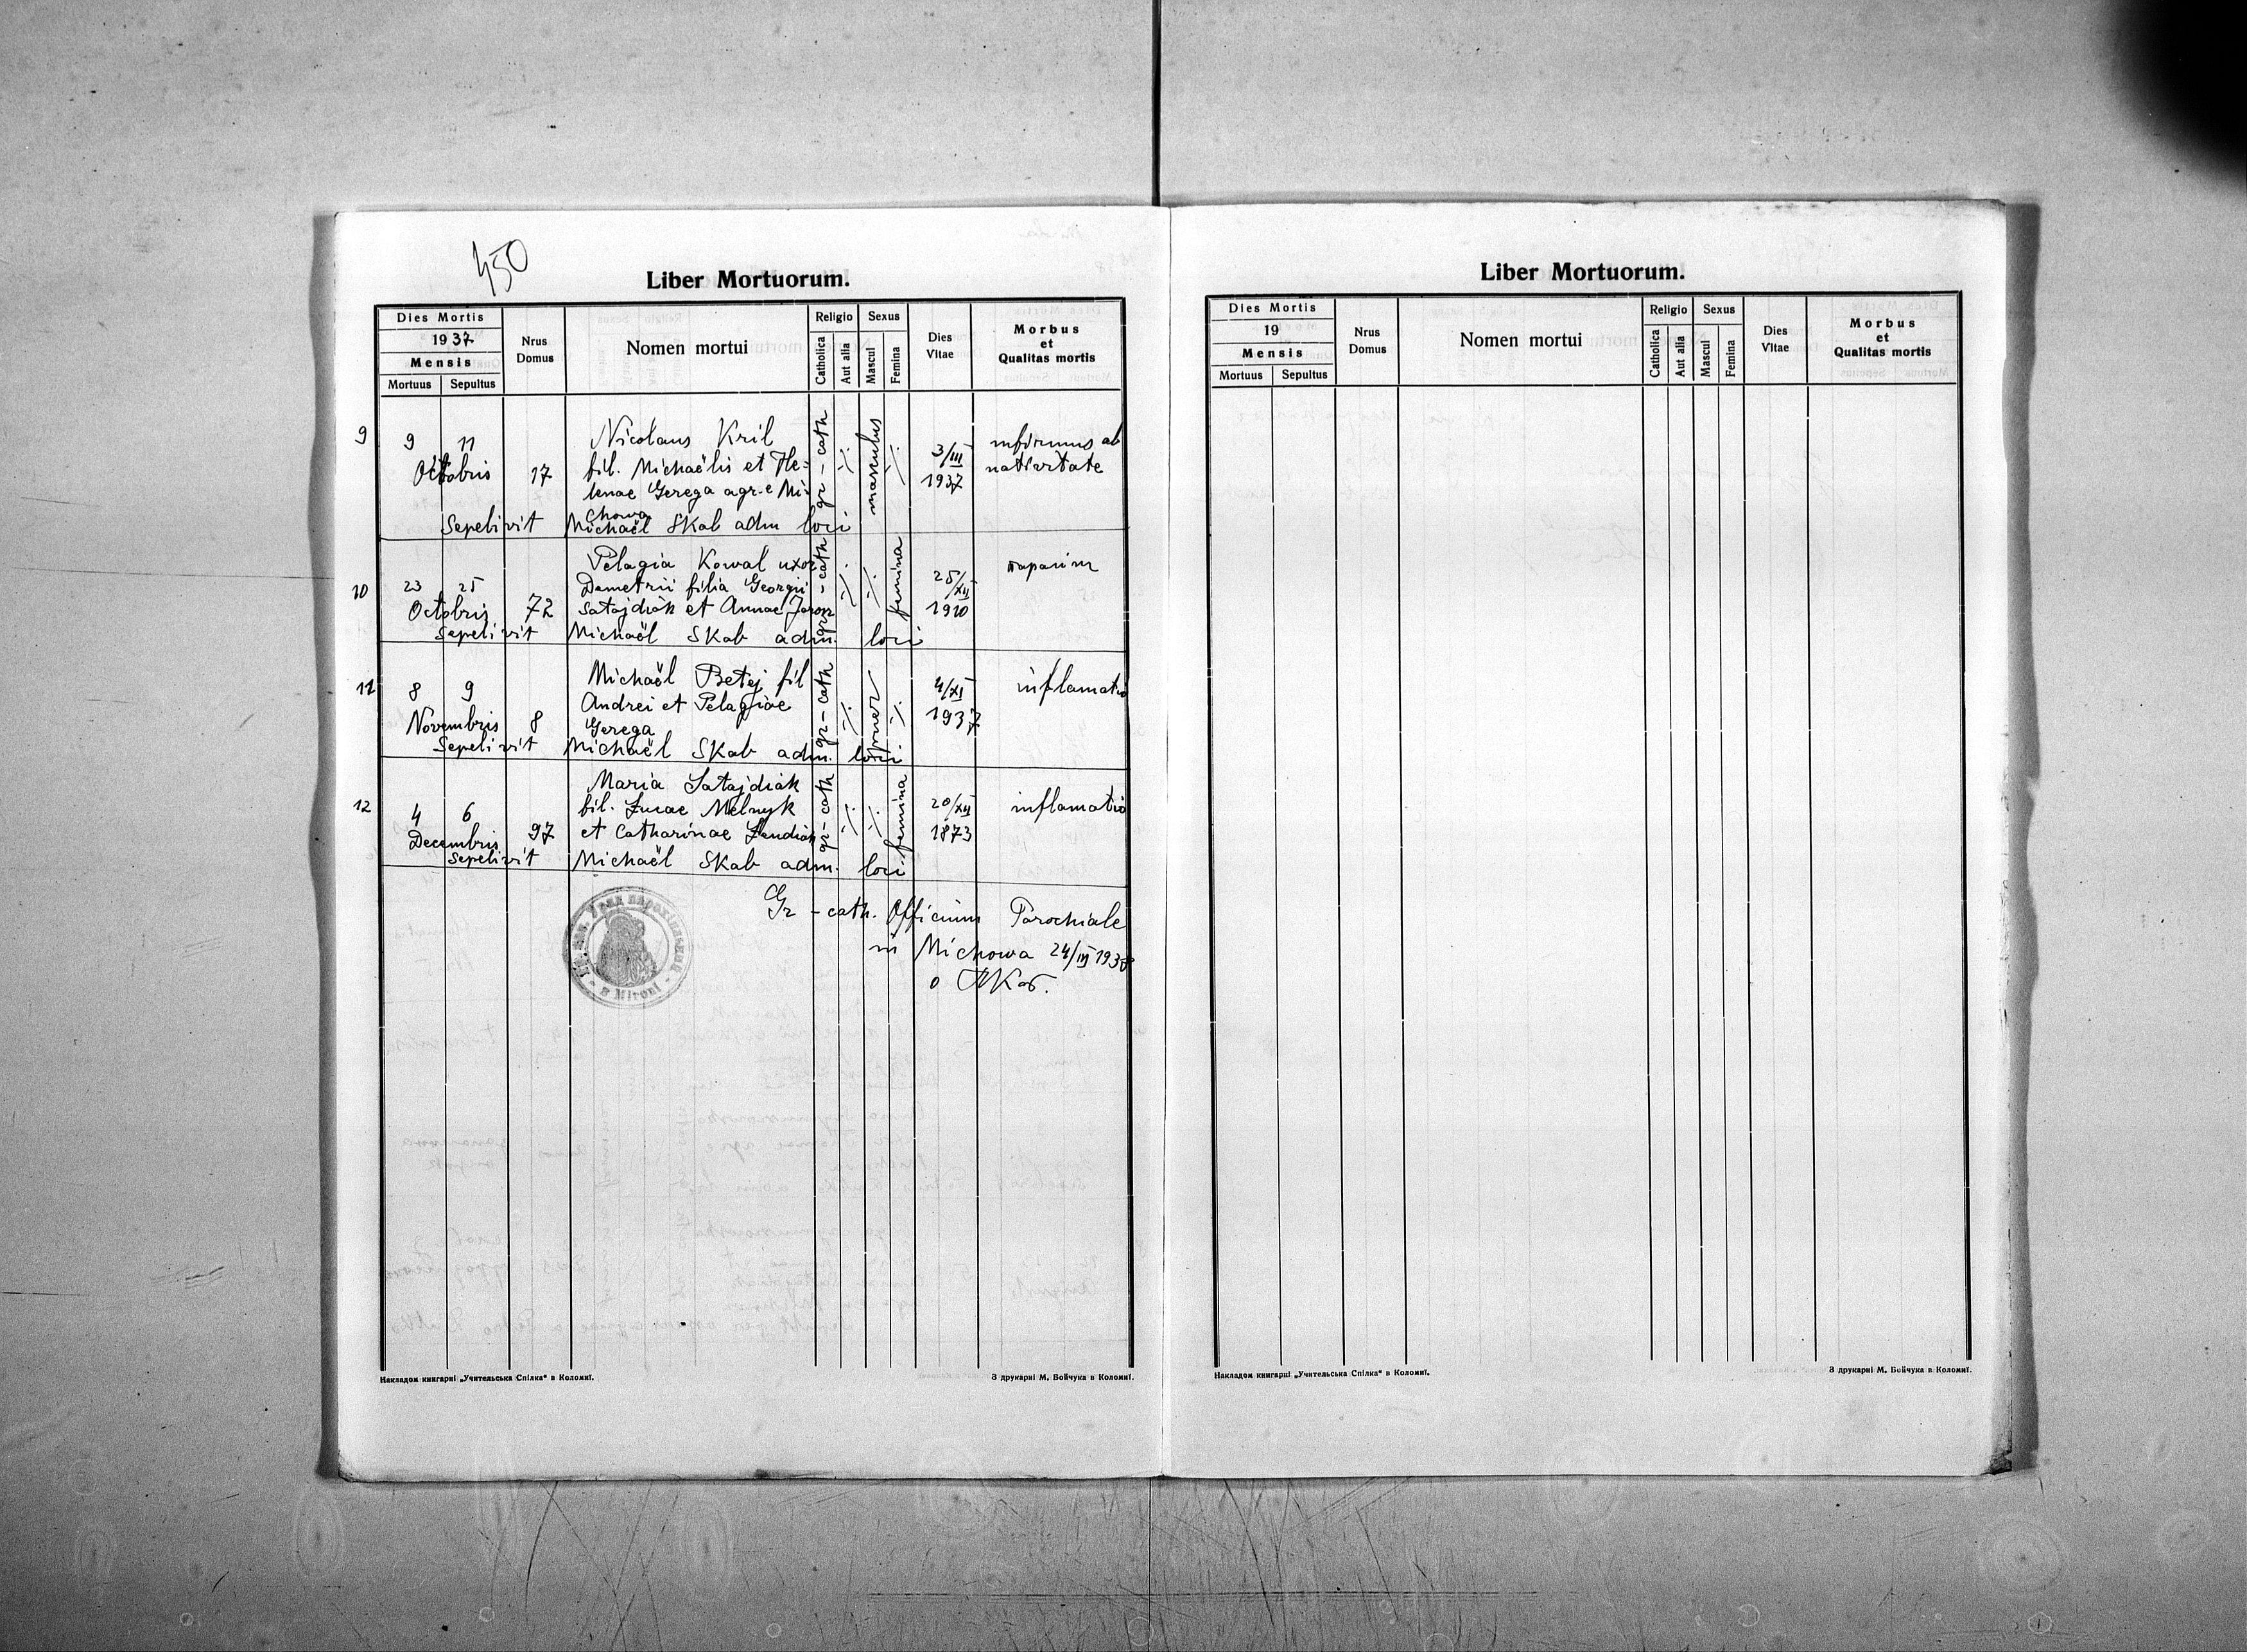 450
Liber Mortuorum.
Dies Mortis
1937
Mensis
Mortuus Sepultus
Nrus Domus
Nomen mortui
Religio
Catholica
Aut alia
Sexus
Mascul
Femina
Dies Vitae
Morbus et Qualitas mortis
9 9 11 Nicolaus Kril gr-cath ·/· masculus ·/· 3/III infirmus ab
Octobris 17 fil. Michaëlis et He= 1937 nativitate
lenae Gerega agr-e Mi-
chowa
Sepelivit Michaël Skab adm loci
10 23 25 Pelagia Kowal uxor gr-cath ·/· ·/· femina 25/XII
Octobris 72 Demetrii filia Georgii 1910
Satajdiak et Annae
Sepelivit Michaël Skab adm. loci
11 8 9 Michaël Betej fil gr-cath ·/· puer ·/· 4/XI inflamatio
Novembris 8 Andrei et Pelagiae 1937
Gerega
Sepelivit Michaël Skab adm. loci
12 4 6 Maria Satajdiak gr-cath ·/· ·/· femina 20/XII inflamatio
Decembris 97 fil. Lucae Melnyk 1873
et Catharinae
Sepelivit Michaël Skab adm. loci
Gr-cath. Officium Parochiale
in Michowa 24/III 1938
Уряд парохіяльний
в Міговї
Накладом книгарні „Учительська Спілка“ в Коломиї.
З друкарні М. Бойчука в Коломиї.
Liber Mortuorum.
Dies Mortis
19
Mensis
Mortuus Sepultus
Nrus Domus
Nomen mortui
Religio
Catholica
Aut alia
Sexus
Mascul
Femina
Dies Vitae
Morbus et Qualitas mortis
Накладом книгарні „Учительська Спілка“ в Коломиї.
З друкарні М. Бойчука в Коломиї.